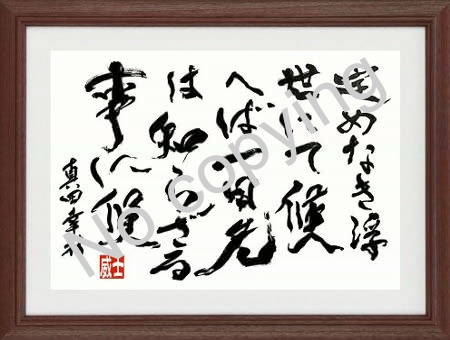 定めなき浮
世にて候
へば一日先
は知らざる
事に候
真田幸村
士威
No copying